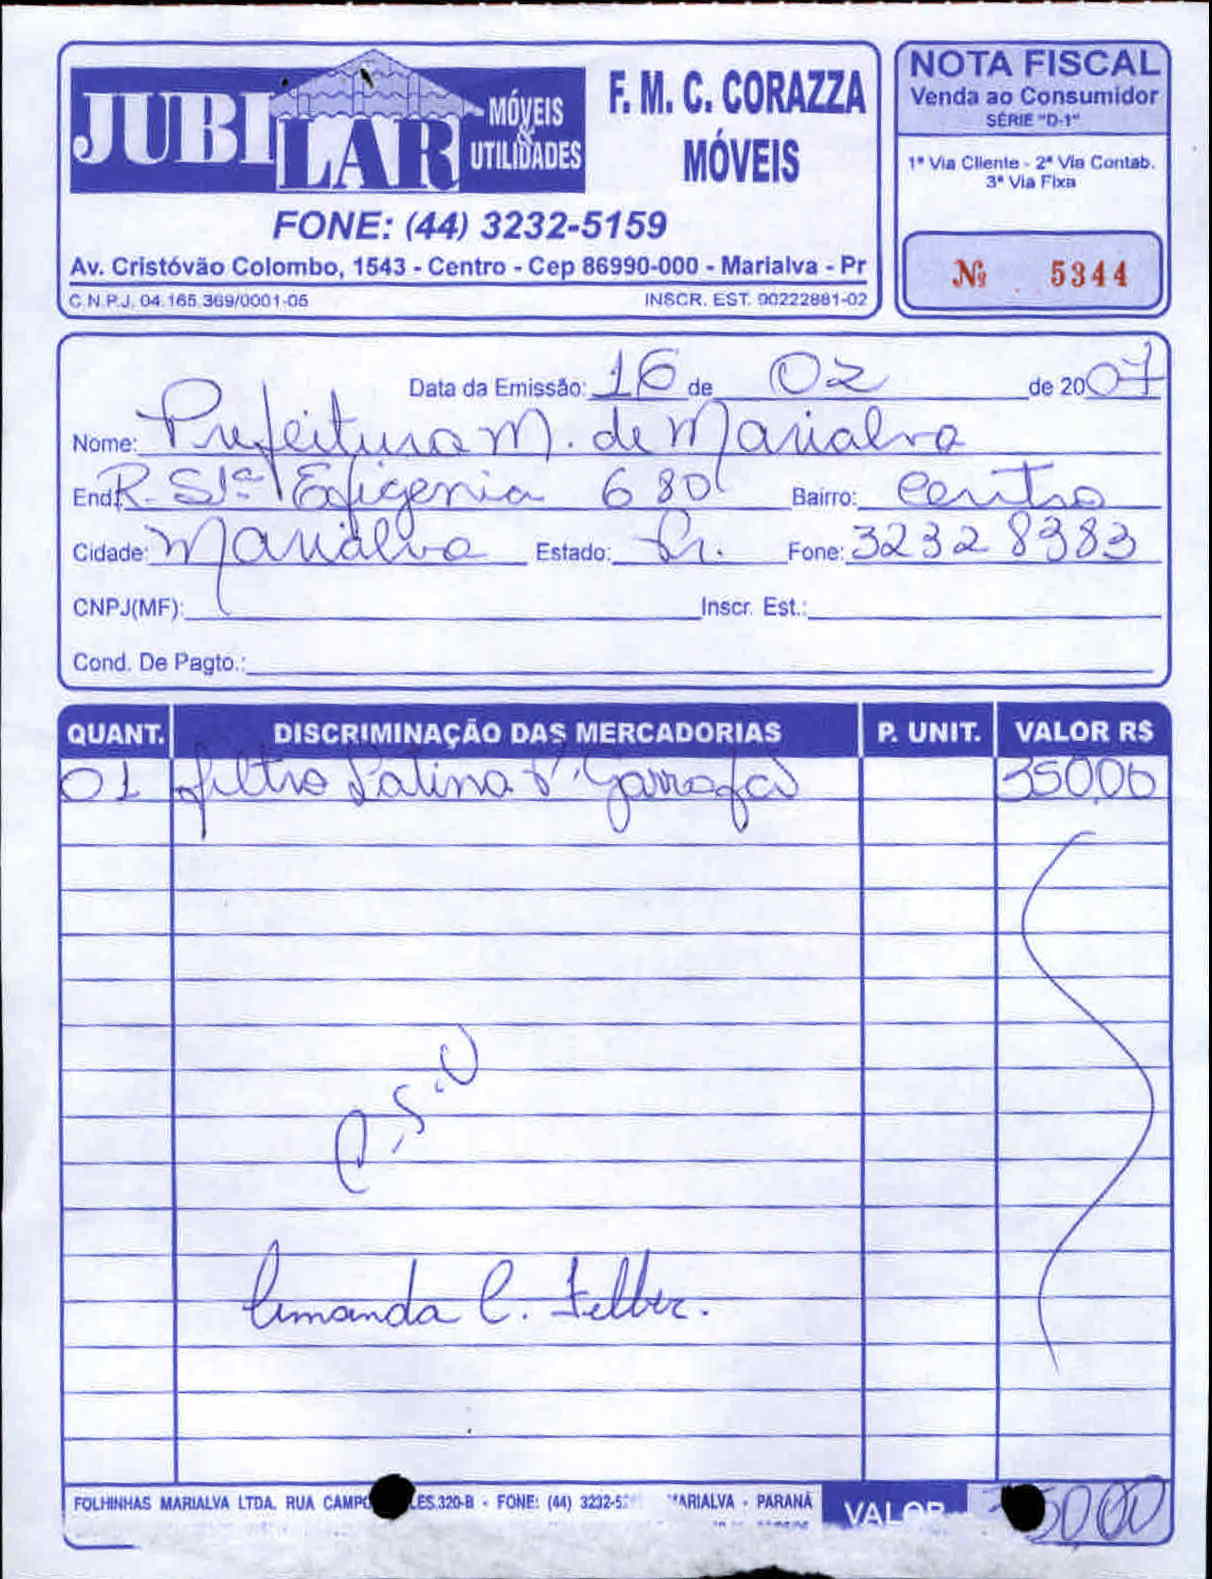 JUBI LAR MÓVEIS & UTILIDADES
F. M. C. CORAZZA
MÓVEIS
FONE: (44) 3232-5159
Av. Cristóvão Colombo, 1543 - Centro - Cep 86990-000 - Marialva - Pr
C.N.P.J. 04.165.369/0001-05 INSCR. EST. 90222881-02
NOTA FISCAL
Venda ao Consumidor
SÉRIE "D-1"
1ª Via Cliente - 2ª Via Contab.
3ª Via Fixa
Nº 5344
Data da Emissão: 16 de 02 de 2007
Nome: Prefeitura M. de Marialva
End. R. Sta Efigenia 680 Bairro: Centro
Cidade: Marialva Estado: Pr. Fone: 3232 8383
CNPJ(MF): Inscr. Est.:
Cond. De Pagto.:
QUANT. DISCRIMINAÇÃO DAS MERCADORIAS P. UNIT. VALOR R$
01 filtro Latina P. Garrafa 350,00
Amanda C. Felber.
FOLHINHAS MARIALVA LTDA. RUA 320-B - FONE: (44) MARIALVA - PARANÁ
VALOR 350,00